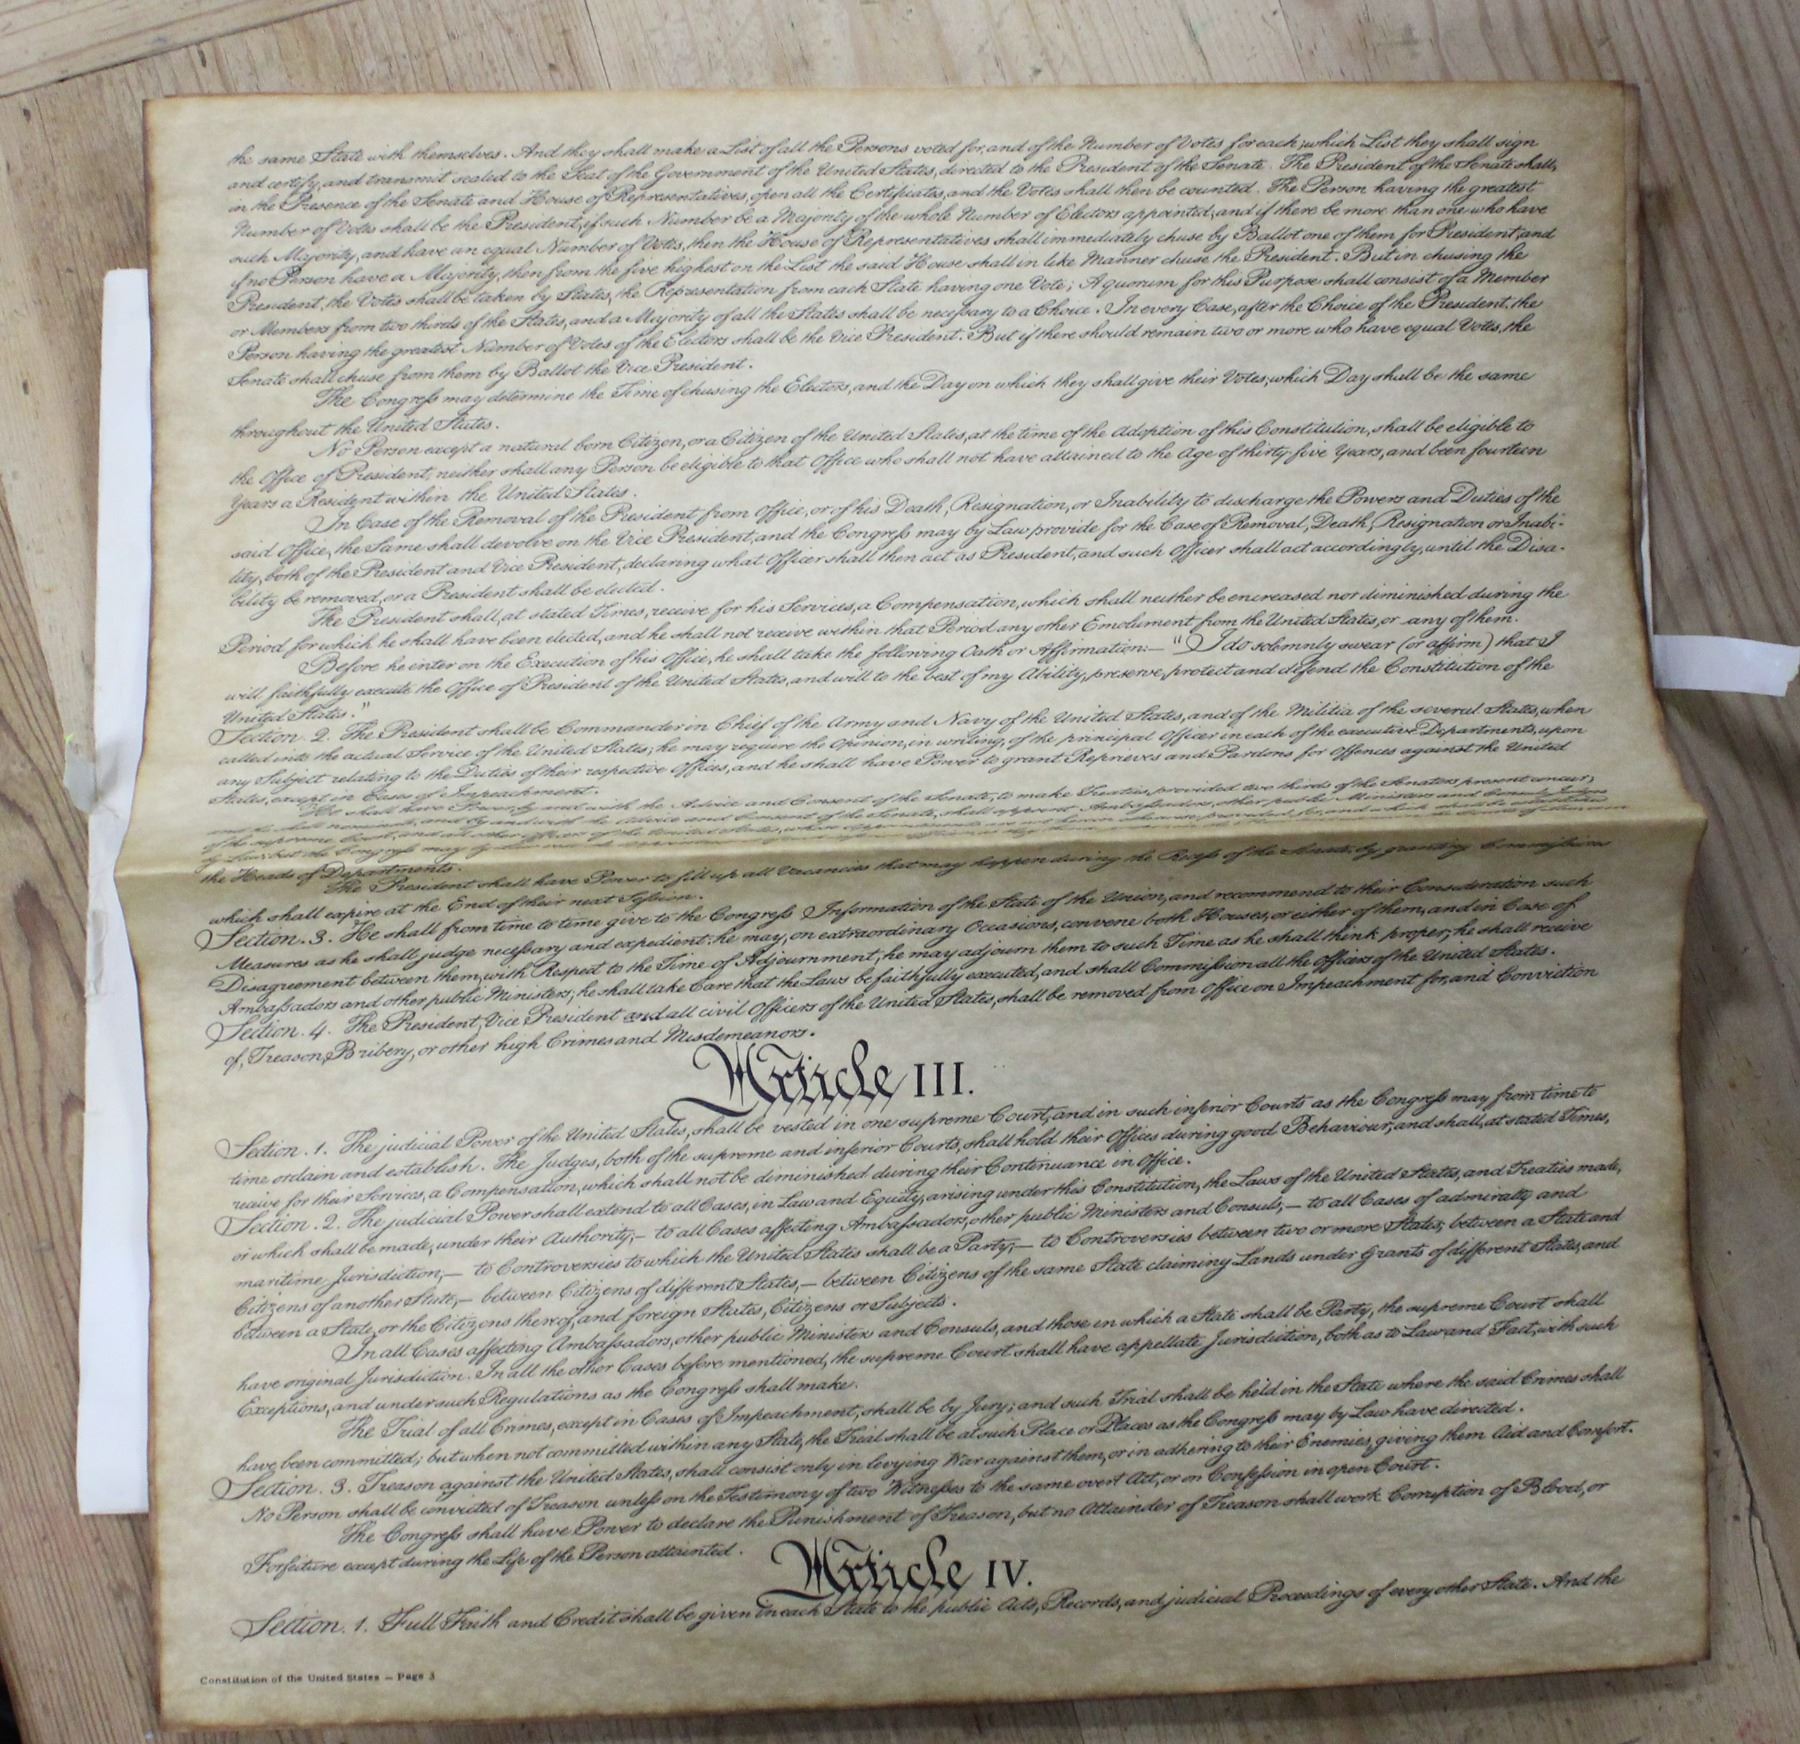 the same State with themselves. And they shall make a List of all the Persons voted for, and of the Number of Votes for each; which List they shall sign
and certify, and transmit sealed to the Seat of the Government of the United States, directed to the President of the Senate. The President of the Senate shall,
in the Presence of the Senate and House of Representatives, open all the Certificates, and the Votes shall then be counted. The Person having the greatest
Number of Votes shall be the President, if such Number be a Majority of the whole Number of Electors appointed; and if there be more than one who have
such Majority, and have an equal Number of Votes, then the House of Representatives shall immediately chuse by Ballot one of them for President; and
if no Person have a Majority, then from the five highest on the List the said House shall in like Manner chuse the President. But in chusing the
President, the Votes shall be taken by States, the Representation from each State having one Vote; A quorum for this Purpose shall consist of a Member
or Members from two thirds of the States, and a Majority of all the States shall be necessary to a Choice. In every Case, after the Choice of the President, the
Person having the greatest Number of Votes of the Electors shall be the Vice President. But if there should remain two or more who have equal Votes, the
Senate shall chuse from them by Ballot the Vice President.
The Congress may determine the Time of chusing the Electors, and the Day on which they shall give their Votes; which Day shall be the same
throughout the United States.
No Person except a natural born Citizen, or a Citizen of the United States, at the time of the Adoption of this Constitution, shall be eligible to
the Office of President; neither shall any Person be eligible to that Office who shall not have attained to the Age of thirty five Years, and been fourteen
Years a Resident within the United States.
In Case of the Removal of the President from Office, or of his Death, Resignation, or Inability to discharge the Powers and Duties of the
said Office, the Same shall devolve on the Vice President, and the Congress may by Law provide for the Case of Removal, Death, Resignation or Inabi-
lity, both of the President and Vice President, declaring what Officer shall then act as President, and such Officer shall act accordingly, until the Disa-
bility be removed, or a President shall be elected.
The President shall, at stated Times, receive for his Services, a Compensation, which shall neither be encreased nor diminished during the
Period for which he shall have been elected, and he shall not receive within that Period any other Emolument from the United States, or any of them.
Before he enter on the Execution of his Office, he shall take the following Oath or Affirmation:— "I do solemnly swear (or affirm) that I
will faithfully execute the Office of President of the United States, and will to the best of my Ability, preserve, protect and defend the Constitution of the
United States."
Section. 2. The President shall be Commander in Chief of the Army and Navy of the United States, and of the Militia of the several States, when
called into the actual Service of the United States; he may require the Opinion, in writing, of the principal Officer in each of the executive Departments, upon
any Subject relating to the Duties of their respective Offices, and he shall have Power to grant Reprieves and Pardons for Offences against the United
States, except in Cases of Impeachment.
He shall have Power, by and with the Advice and Consent of the Senate, to make Treaties, provided two thirds of the Senators present concur;
and he shall nominate, and by and with the Advice and Consent of the Senate, shall appoint Ambassadors, other public Ministers and Consuls, Judges
of the supreme Court, and all other Officers of the United States, whose Appointments are not herein otherwise provided for, and which shall be established
by Law: but the Congress may by Law
the Heads of Departments.
The President shall have Power to fill up all Vacancies that may happen during the Recess of the Senate, by granting Commissions
which shall expire at the End of their next Session.
Section. 3. He shall from time to time give to the Congress Information of the State of the Union, and recommend to their Consideration such
Measures as he shall judge necessary and expedient; he may, on extraordinary Occasions, convene both Houses, or either of them, and in Case of
Disagreement between them, with Respect to the Time of Adjournment, he may adjourn them to such Time as he shall think proper; he shall receive
Ambassadors and other public Ministers; he shall take Care that the Laws be faithfully executed, and shall Commission all the Officers of the United States.
Section. 4. The President, Vice President and all civil Officers of the United States, shall be removed from Office on Impeachment for, and Conviction
of, Treason, Bribery, or other high Crimes and Misdemeanors.
Article III.
Section. 1. The judicial Power of the United States, shall be vested in one supreme Court, and in such inferior Courts as the Congress may from time to
time ordain and establish. The Judges, both of the supreme and inferior Courts, shall hold their Offices during good Behaviour, and shall, at stated Times,
receive for their Services, a Compensation, which shall not be diminished during their Continuance in Office.
Section. 2. The judicial Power shall extend to all Cases, in Law and Equity, arising under this Constitution, the Laws of the United States, and Treaties made,
or which shall be made, under their Authority;— to all Cases affecting Ambassadors, other public Ministers and Consuls;— to all Cases of admiralty and
maritime Jurisdiction;— to Controversies to which the United States shall be a Party;— to Controversies between two or more States; between a State and
Citizens of another State;— between Citizens of different States,— between Citizens of the same State claiming Lands under Grants of different States, and
between a State, or the Citizens thereof, and foreign States, Citizens or Subjects.
In all Cases affecting Ambassadors, other public Ministers and Consuls, and those in which a State shall be Party, the supreme Court shall
have original Jurisdiction. In all the other Cases before mentioned, the supreme Court shall have appellate Jurisdiction, both as to Law and Fact, with such
Exceptions, and under such Regulations as the Congress shall make.
The Trial of all Crimes, except in Cases of Impeachment, shall be by Jury; and such Trial shall be held in the State where the said Crimes shall
have been committed; but when not committed within any State, the Trial shall be at such Place or Places as the Congress may by Law have directed.
Section. 3. Treason against the United States, shall consist only in levying War against them, or in adhering to their Enemies, giving them Aid and Comfort.
No Person shall be convicted of Treason unless on the Testimony of two Witnesses to the same overt Act, or on Confession in open Court.
The Congress shall have Power to declare the Punishment of Treason, but no Attainder of Treason shall work Corruption of Blood, or
Forfeiture except during the Life of the Person attainted.
Article IV.
Section. 1. Full Faith and Credit shall be given in each State to the public Acts, Records, and judicial Proceedings of every other State. And the
Constitution of the United States — Page 3